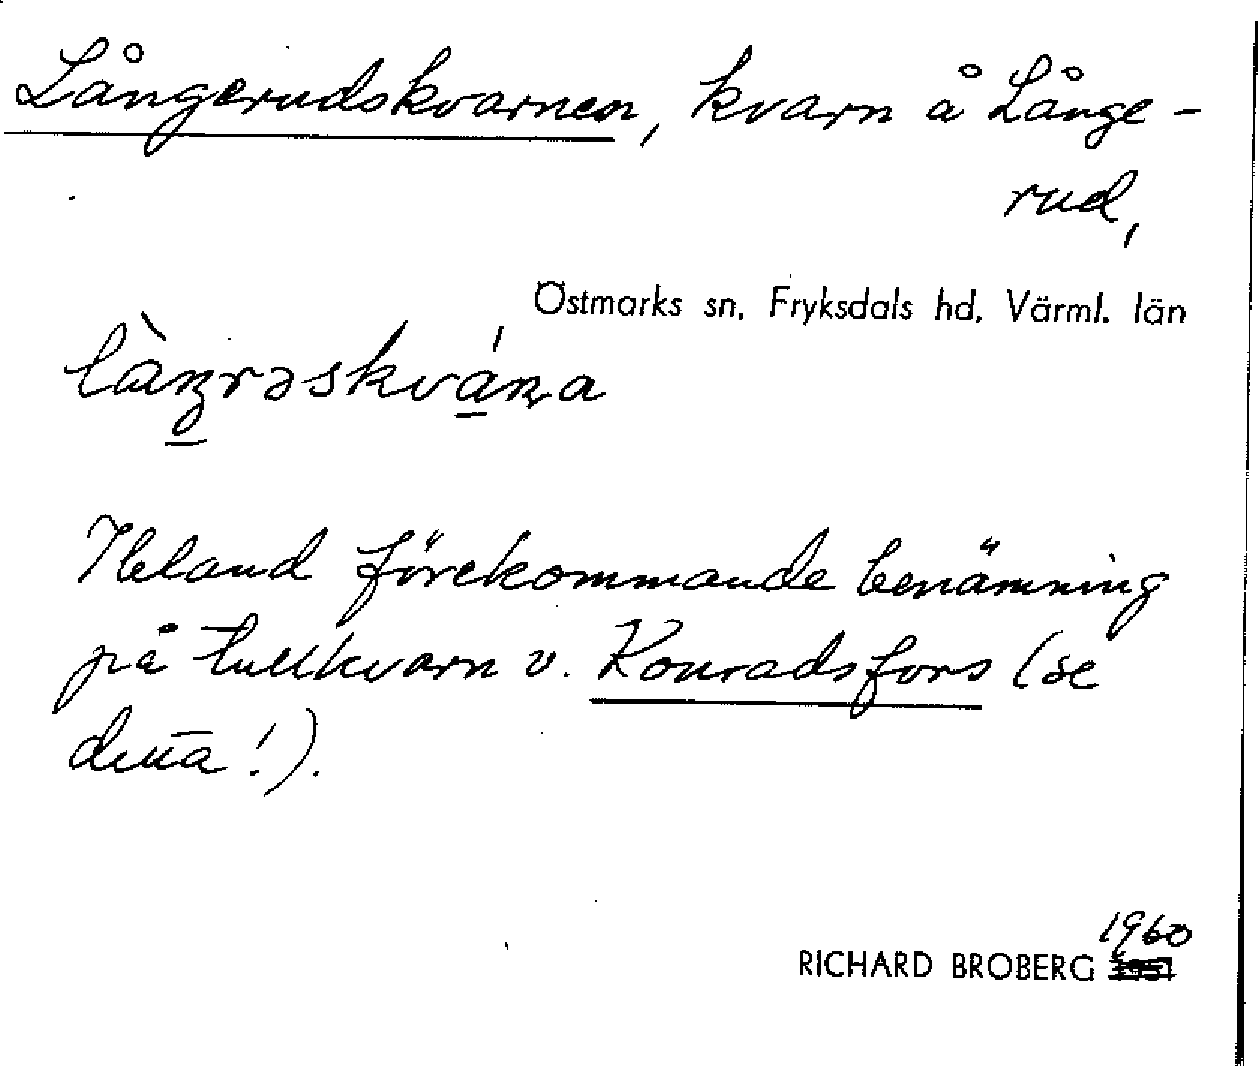 Långerudskvarnen, kvarn å Långe-
rud,
Östmarks sn, Fryksdals hd, Värml. län
Ibland förekommande benämning
på tullkvarn v. Konradsfors (se
detta!).
1960
RICHARD BROBERG